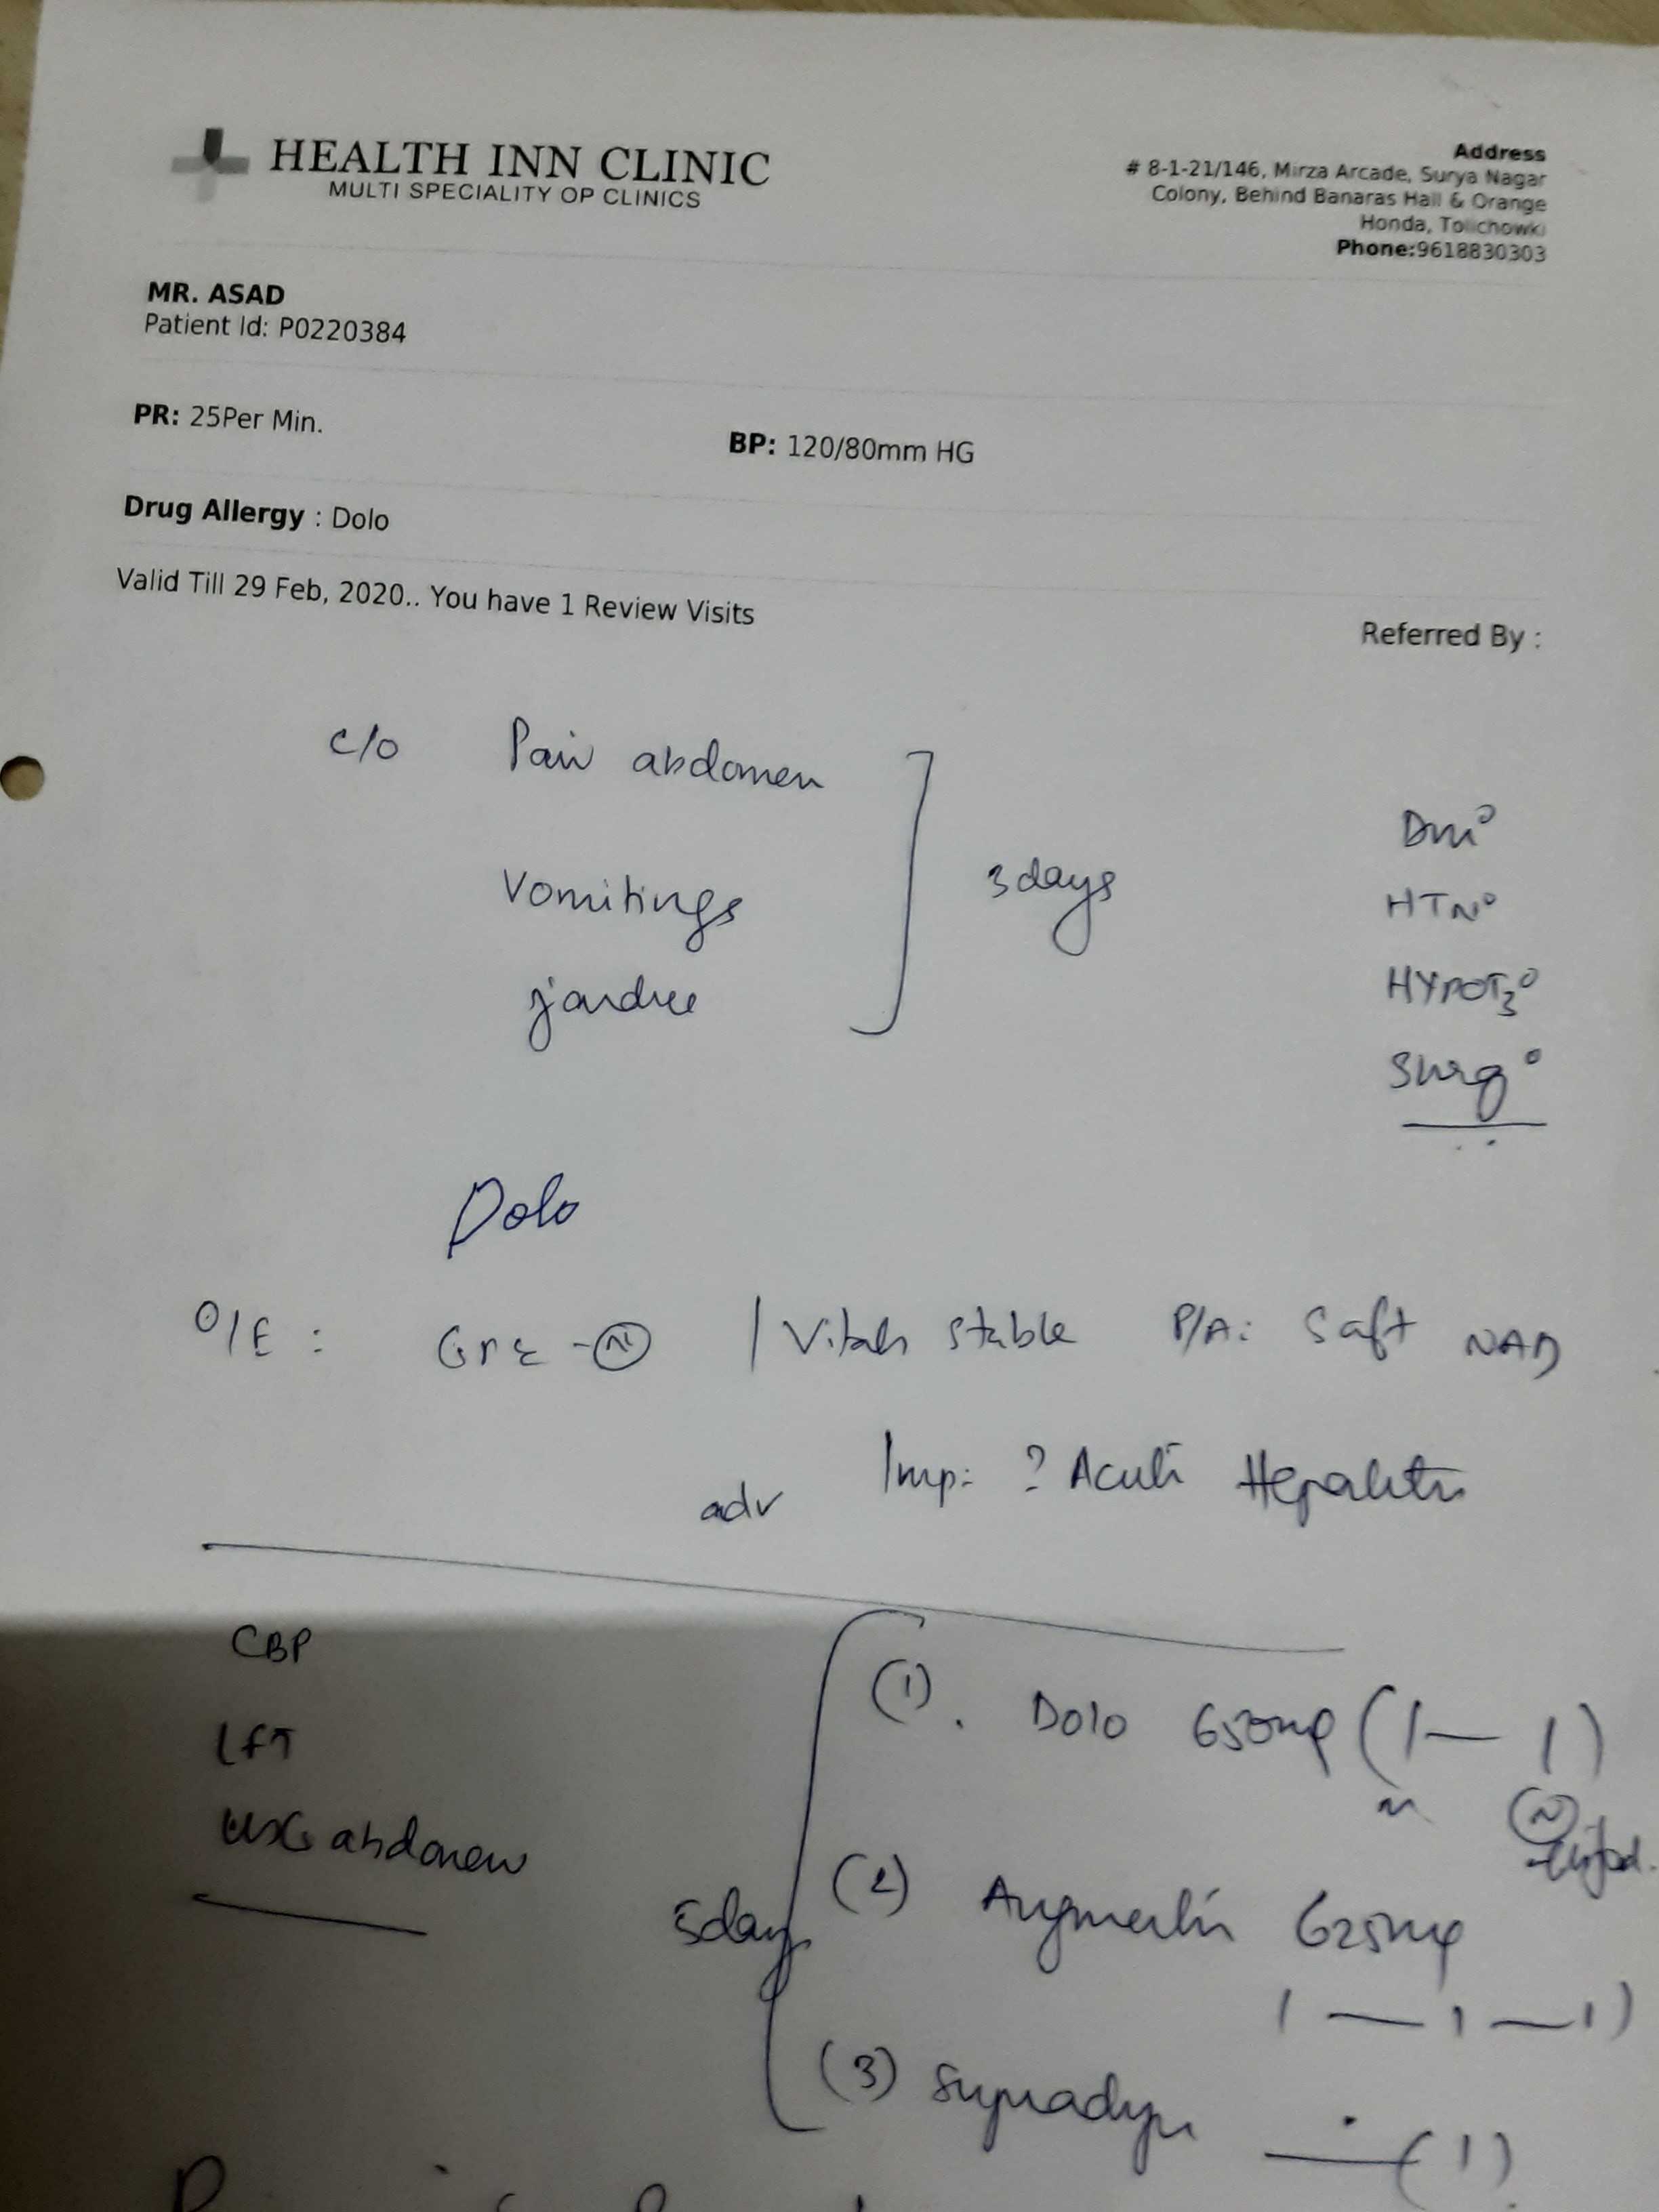 HEALTH INN CLINIC
MULTI SPECIALITY OP CLINICS
Address
# 8-1-21/146, Mirza Arcade, Surya Nagar
Colony, Behind Banaras Hall & Orange
Honda, Tolichowki
Phone:9618830303
MR. ASAD
Patient Id: P0220384
PR: 25Per Min.
BP: 120/80mm HG
Drug Allergy : Dolo
Valid Till 29 Feb, 2020.. You have 1 Review Visits
Referred By :
c/o Pain abdomen
Vomitings
3 days
DM°
HTN°
HYPOT3°
Surg°
Dolo
O/E : - (N) / Vitals stable P/A: Soft NAD
Imp: ? Acute Hepatitis
adv
CBP
LFT
USG abdomen
5days
(1). Dolo 650mg (1 — 1)
(N)
(2) Augmentin 625mg
1 — 1 — 1)
(3) — (1)